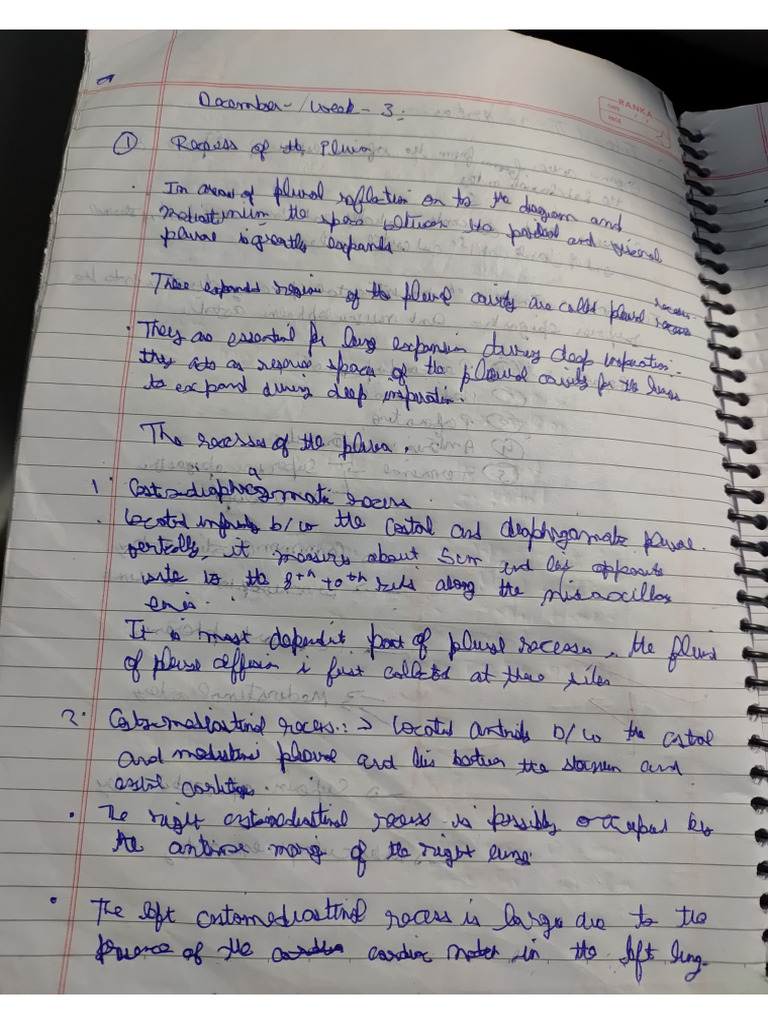 RANKA
DATE / /
PAGE
December-/week - 3:
① Recess of the Plura
. In areas of plural reflation on to the diagram and
mediastinum the space between the parietal and visceral
plural is greatly expands
These expanded region of the plural cavity are called plural recess
. They are essential for lung expansion during deep inspiration.
they acts as reserve spaces of the plural cavity for the lungs
to expand during deep inspiration.
The recesses of the plura.
1. Costodiaphragmatic recess.
. Located inferiorly b/w the costal and diaphragamatic plural.
vertically, it measures about 5cm and lies opposite
to the 8th to 10th ribs along the
It is most dependent part of plural recesses. the fluid
of plural effusion is first collected at these sites
2. Costomediastinal recess:⇒ Located b/w the costal
and mediastinal plural and lies between the sternum and
costal cartilage.
. The right costomediastinal recess is possibly occupied by
the margin of the right lung.
. The left costomediastinal recess is large due to the
presence of the cardiac in the left lung.